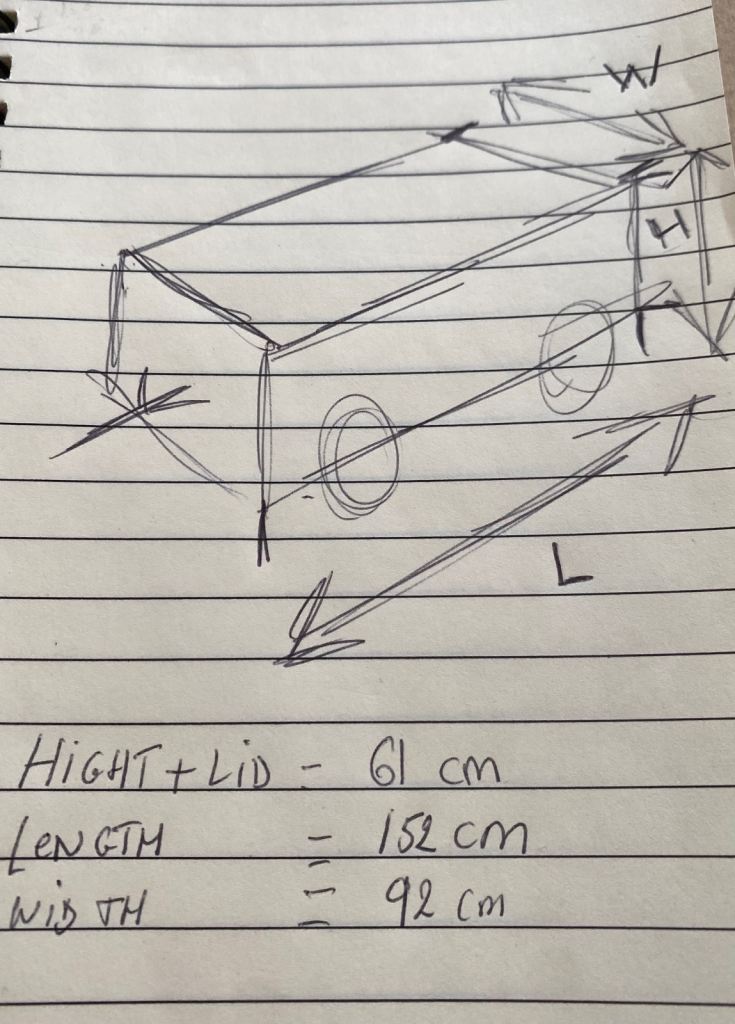 W
H
L
HiGHT + LiD = 61 cm
LeNGTH = 152 cm
WiDTH = 92 cm